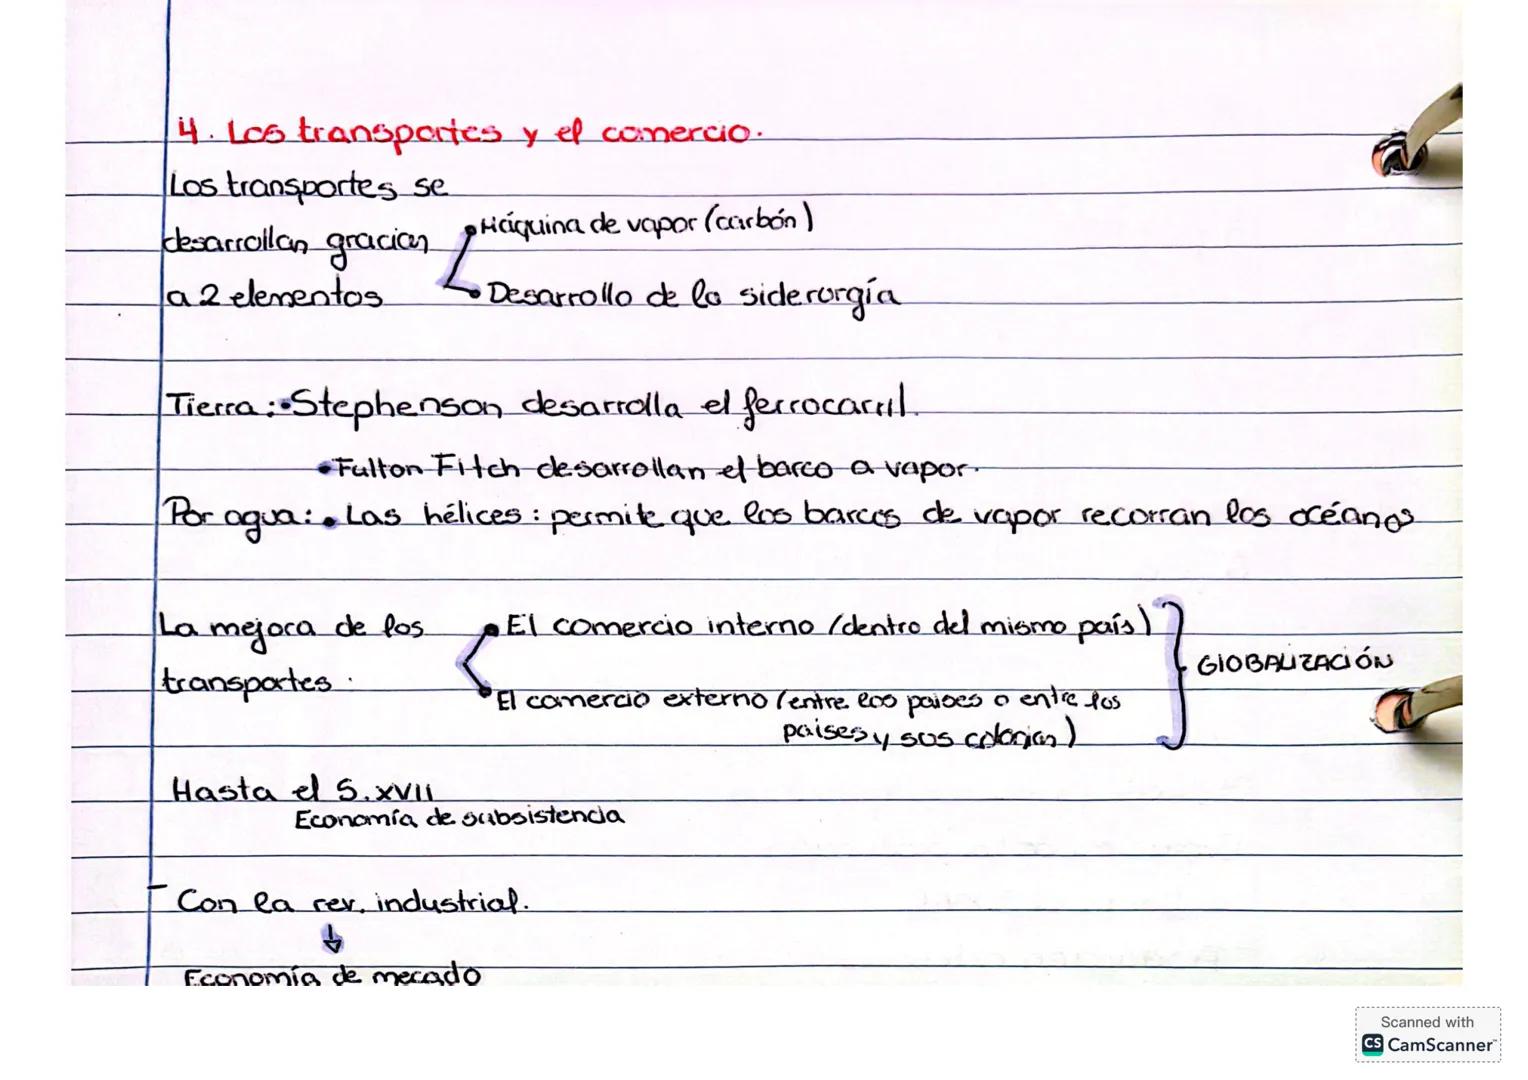 4. Los transportes y el comercio.
Los transportes se
desarrollan gracias
a 2 elementos
Máquina de vapor (carbón)
Desarrollo de la siderurgía
Tierra: •Stephenson desarrolla el ferrocarril.
•Fulton Fitch desarrollan el barco a vapor.
Por agua: • Las hélices: permite que los barcos de vapor recorran los océanos
La mejora de los
transportes:
• El comercio interno (dentro del mismo país)
• El comercio externo (entre los paises o entre los
paises y sus colonias)
GlOBALIZACIÓN
Hasta el S.XVII
Economía de subsistencia
- Con la rev. industrial.
↓
Economía de mecado
Scanned with
CS CamScanner